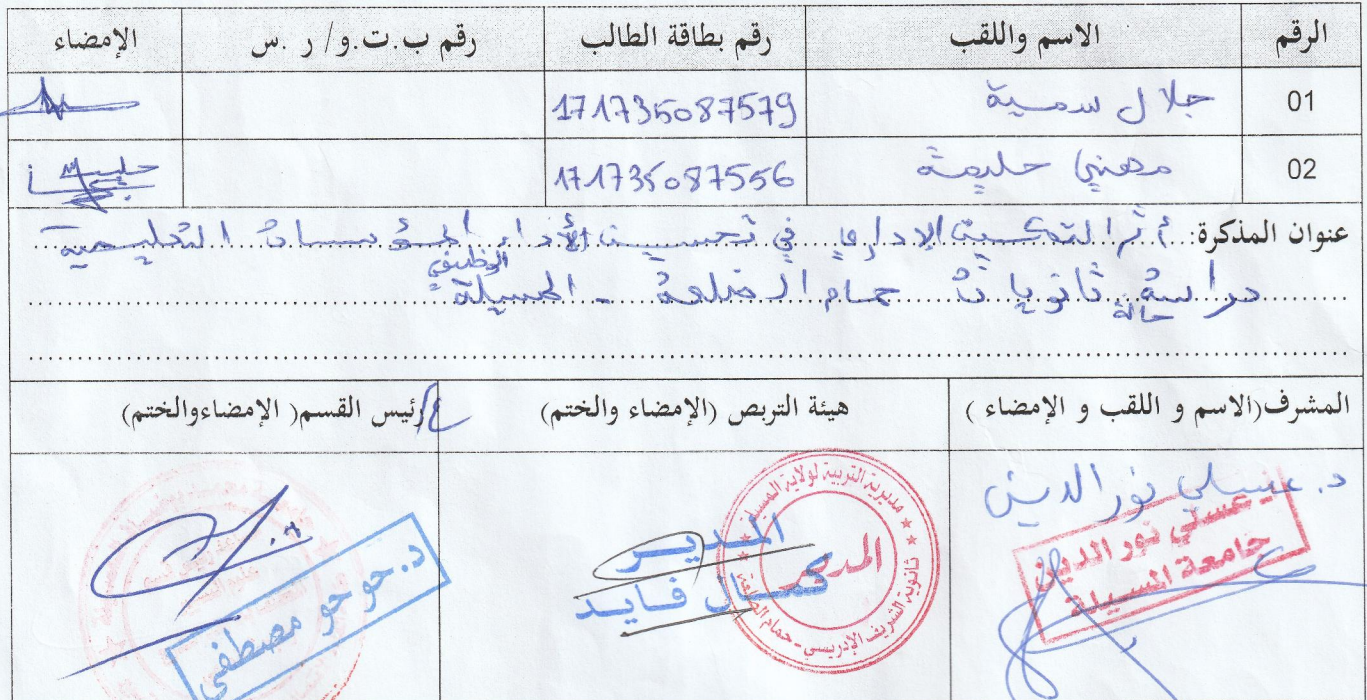 الرقم الاسم واللقب رقم بطاقة الطالب رقم ب.ت.و/ ر .س الإمضاء
01 جلال سمية 171735087579
02 مهني حليمة 171735087556
عنوان المذكرة: أثر التمكين الإداري في تحسين الأداء الوظيفي المؤسسات التعليمية
دراسة حالة ثانويات حمام الضلعة - المسيلة
المشرف(الاسم و اللقب و الإمضاء ) هيئة التربص (الإمضاء والختم) ع/رئيس القسم( الإمضاءوالختم)
د. عسلي نور الدين
د. عسلي نور الدين
جامعة المسيلة
مديرية التربية لولاية المسيلة
ثانوية الشريف الإدريسي - حمام الضلعة
المدير
المدير
كمال قايد
د. حوحو مصطفى